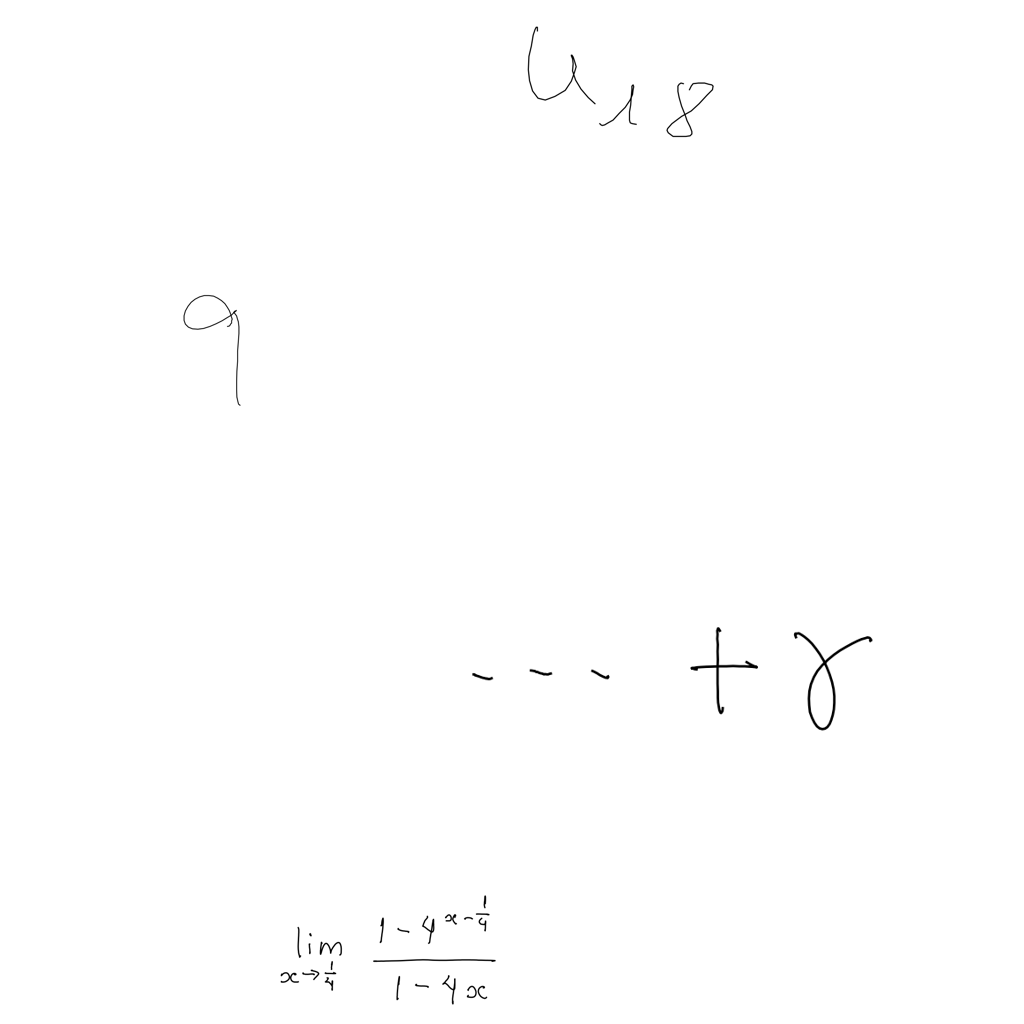 u_{18}
9
- - - + γ
\lim_{x \to \frac{1}{4}} \frac{1 - 4^{x - \frac{1}{4}}}{1 - 4x}